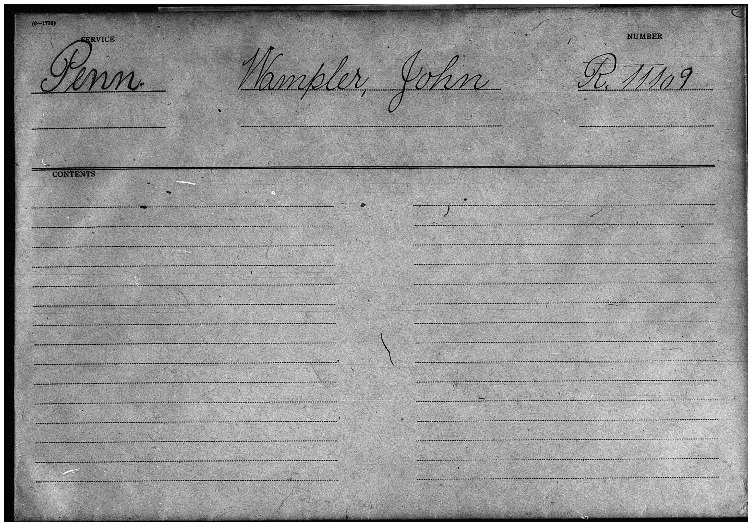 (6—1728)
SERVICE
NUMBER
Penn.
Wampler, John
R. 11109
CONTENTS